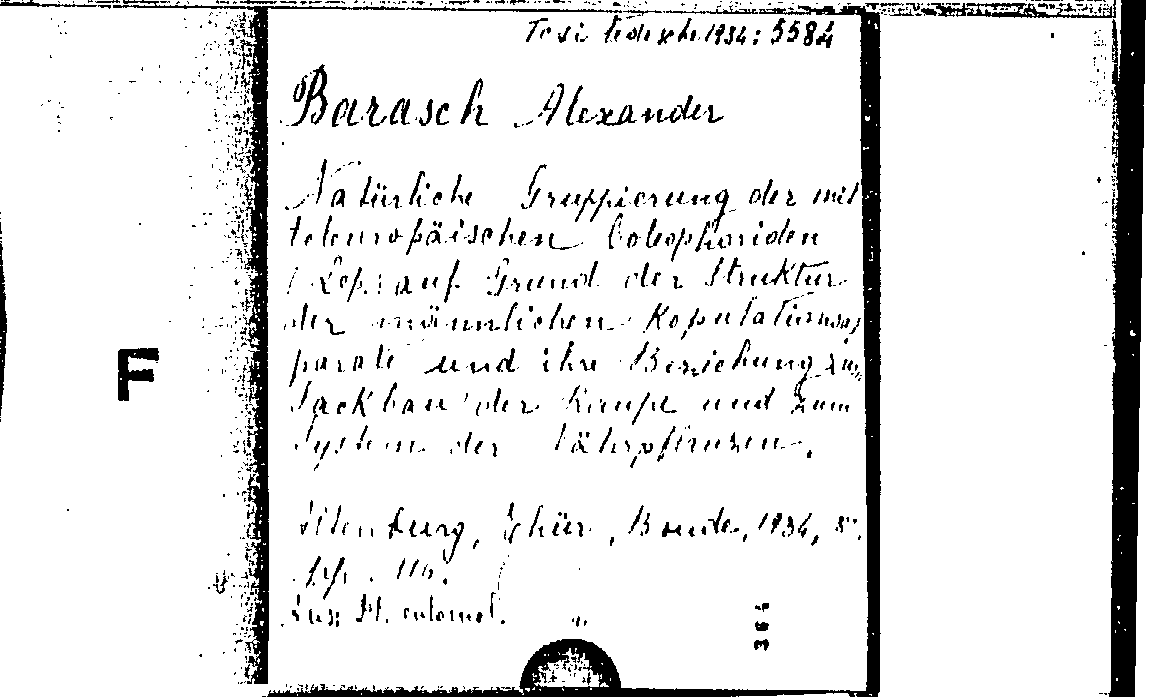 Tesi tedesche 1934: 5584
Barasch Alexander
Natürliche Gruppierung der mit
teleuropäischen Coleophoriden
(Lep.) auf Grund der Struktur
der männlichen Kopulationsap
parate und ihre Beziehung zum
F
Sackbau der Raupe und zum
System der Nährpflanzen.
Altenburg, Thür., Bonde, 1934, 8°.
pp. 116.
Aus: Dt. entomol.
364